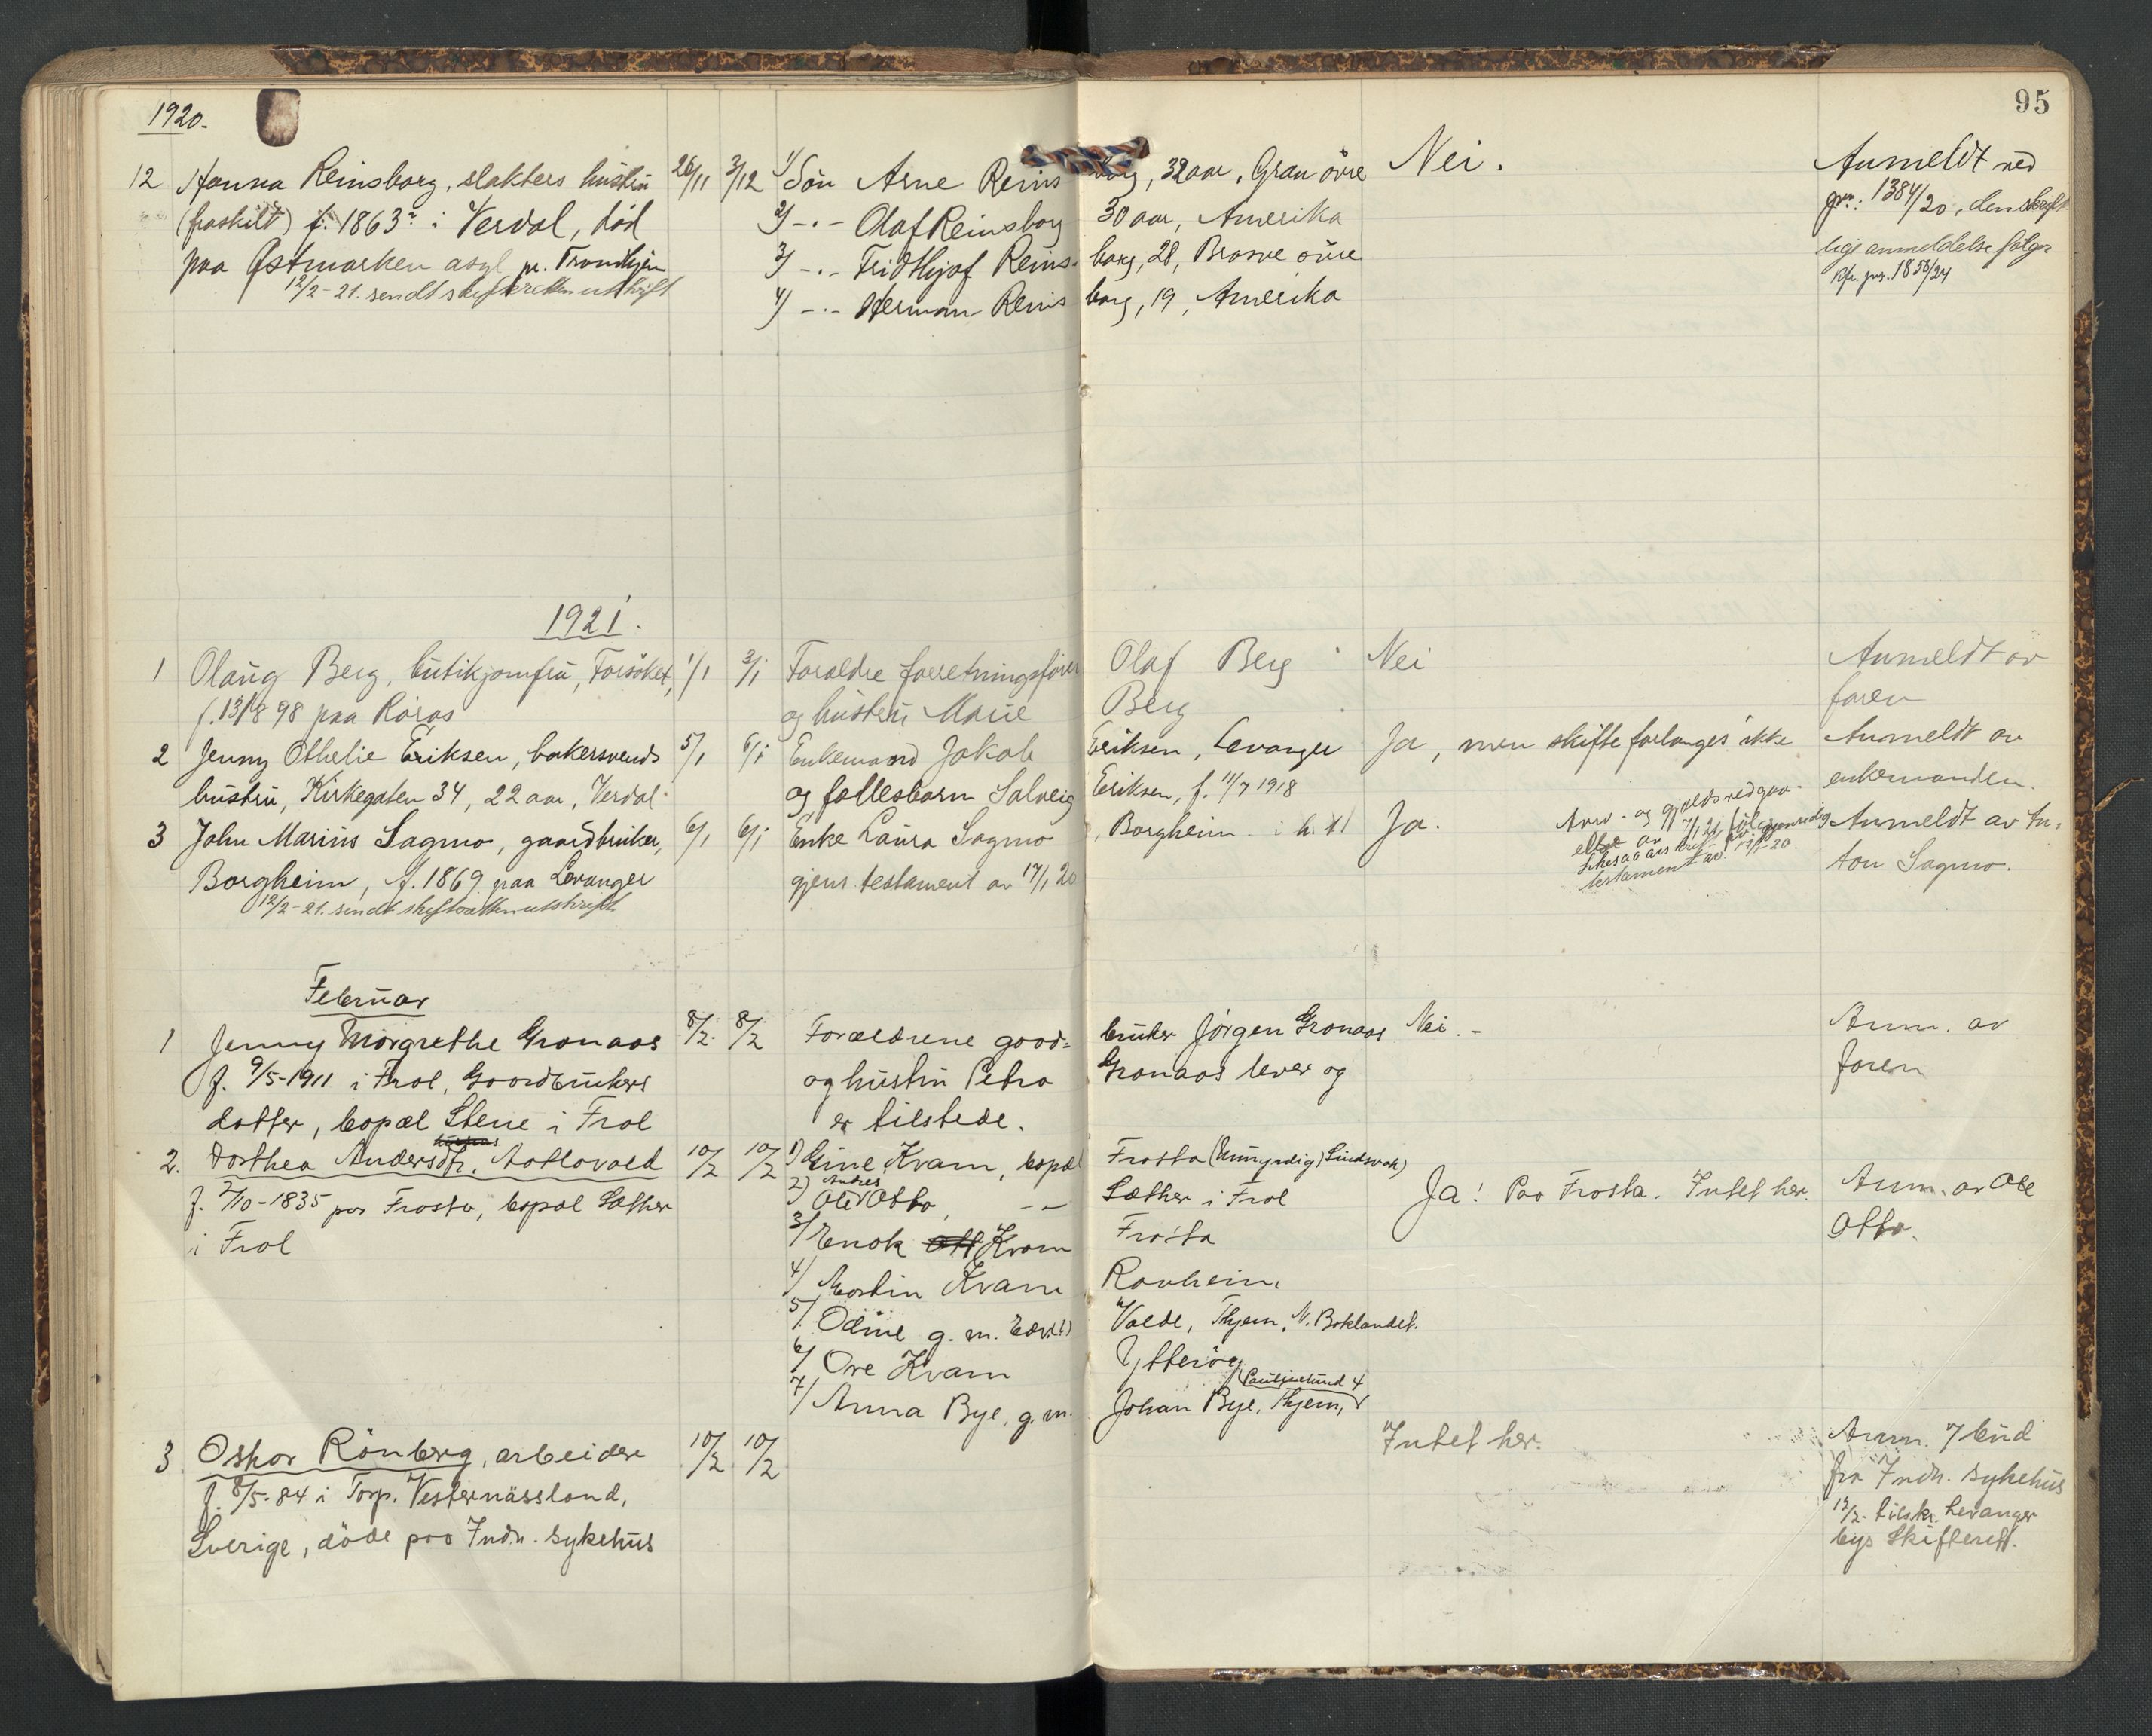 95
1920.
12 Hanna Reinsborg, slakters hustru 26/11 3/12 1/ Søn Arne Reinsborg, 32 aar, Gran övre Nei. Anmeldt ved
(fraskilt) f. 1863 i Verdal, död 2/ -.- Olaf Reinsborg 30 aar, Amerika jnr.: 1384/20, den skrift-
paa Østmarken asyl pr. Trondhjem 3/ -.- Fridthjof Reinsborg, 28, övre lige anmeldelse følger
12/2-21. sendt skifteretten utskrift 4/ -.- Herman Reinsborg, 19, Amerika jnr. 1856/24
1921.
1 Olaug Berg, butikjomfru, Forsöket, 1/1 3/1 Foraldre forretningsfører Olaf Berg Nei Anmeldt av
f. 13/8 98 paa Röros og hustru Marie Berg faren
2 Jenny Othelie Eriksen, bakersvends 5/1 6/1 Enkemand Jakob Eriksen, Levanger Ja, men skifte forlanges ikke Anmeldt av
hustru, Kirkegaten 34, 22 aar, Verdal og fallesbarn Solveig Eriksen, f. 11/7 1918 enkemanden.
3 John Marius Sagmo, gaardbruker, 6/1 6/1 Enke Laura Sagmo, Borgheim i h. t. Ja. Arv- og gjældsvedgaa- Anmeldt av An-
Borgheim, f. 1869 paa Levanger gjens. testament av 17/1 20 else av 7/1 21 følger gjensidig ton Sagmo.
12/2-21. sendt skifteretten utskrift testament av 17/1-20.
Februar
1 Jenny Margrethe Gronaas 8/2. 8/2 Forældrene gaard- bruker Jörgen Gronaas Nei.- Anm. av
f. 9/5-1911 i Frol, Gaardbrukers og hustru Petra Gronaas lever og faren
datter, bopæl Stene i Frol er tilstede.
2. Dorthea Andersdtr. 10/2 10/2 1) Gine Kvam, bopæl Frosta (Umyndig)
f. 2/10-1835 paa Frosta, bopæl Sæther 2) Ole Andres Otto, -- Sæther i Frol Ja! Paa Frosta. Intet her. Anm. av Ole
i Frol 3/ Enok Kvam Frosta Otto.
4/ Martin Kvam Ranheim
5/ Odine g. m. Valde, Thjem, N. Baklandet.
6/ Ove Kvam Ytteröy
7/ Anna Bye, g. m. Johan Bye, Thjem, Paulinelund 4
3 Oskar Rönberg, arbeider 10/2 10/2 Intet her. Anm. 7 bud
f. 8/5-84 i Torp. Vesternässland, fra Indh. sykehus
Sverige, döde paa Indh. sykehus 12/2- tilskr. Levanger
bys Skifterett.